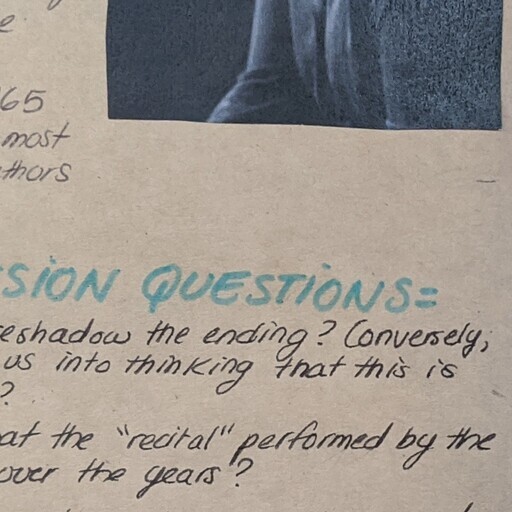 e
65
most
thors
SSION QUESTIONS=
eshadow the ending? Conversely,
us into thinking that this is
?
at the "recital" performed by the
over the years?